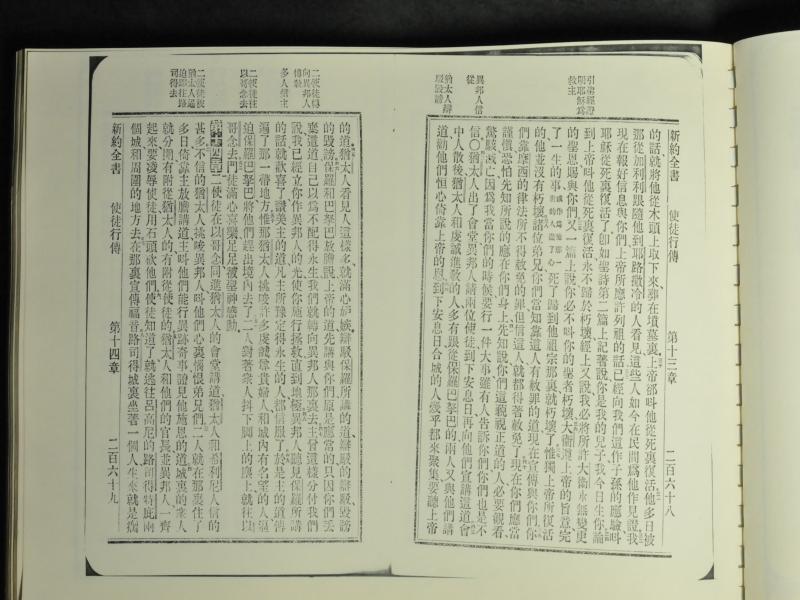 新約全書 使徒行傳 第十三章 二百六十八
引舊經證
明耶穌為
救主
異邦人信
從
猶太人辯
駁毀謗
的話就將他從木頭上取下來葬在墳墓裏上帝卻叫他從死裏復活他多日被
那從加利利跟隨他到耶路撒冷的人看見這些人如今在民間為他作見證我
現在報好信息與你們上帝所應許列祖的話已經向我們這作子孫的應驗叫
耶穌從死裏復活了即如聖詩第二篇上記著說你是我的兒子我今日生你論
到上帝叫他從死裏復活永不歸於朽壞經上又說我必將所許大衛永無變更
的聖恩賜與你們又一篇上說你必不叫你的聖者朽壞大衛遵上帝的旨意完
了一生的事死了歸到他祖宗那裏就朽壞了惟獨上帝所復活
的他並沒有朽壞諸位弟兄你們當知靠這人有赦罪的道現在宣傳與你們你
們靠摩西的律法所不得赦免的罪但信這人就都得著赦免了現在你們應當
謹慎恐怕先知所說的應在你們身上先知說你們這藐視正道的人必要觀看
驚駭滅亡因為我當你們的時候要行一件大事雖有人告訴你們你們也是不
信○猶太人出了會堂異邦人請兩位使徒到下安息日再向他們宣講這道會
中人散後猶太人和虔誠進教的人多有跟從保羅巴拏巴的兩人又與他們講
道勸他們恒心倚靠上帝的恩到下安息日合城的人幾乎都來聚集要聽上帝
新約全書 使徒行傳 第十四章 二百六十九
二使徒轉
向異邦人
傳教
多人信主
二使徒往
以哥念去
二使徒被
猶太人逼
迫即往路
司得去
的道猶太人看見人這樣多就滿心嫉妒辯駁保羅所講的道辯駁的辯駁毀謗
的毀謗保羅和巴拏巴放膽說上帝的道先講與你們原是應當的只因你們丟
棄這道自己以為不配得永生我們就轉向異邦人那裏去主曾這樣分付我們
說我已經立你作異邦人的光使你施行拯救直到地極異邦人聽見保羅所講
的話就歡喜了讚美主的道凡主所豫定得永生的人都信服了於是主的道傳
遍了那一帶地方惟那猶太人挑唆許多虔誠尊貴婦人和城內有名望的人逼
迫保羅巴拏巴將他們趕出境內去了二人對著衆人抖下脚上的塵土就往以
哥念去門徒滿心喜樂足足被聖神感動
第十四章二使徒在以哥念同進猶太人的會堂講道猶太人和希利尼人信的
甚多不信的猶太人挑唆異邦人叫他們心裏惱恨弟兄們二人就在那裏住了
多日倚靠主放膽講道主叫他們能行異跡奇事證見他施恩的道城裏的衆人
就分開有附從猶太人的有附從使徒的猶太人和他們的官長並異邦人一齊
起來要凌辱使徒用石頭砍他們使徒知道了就逃往呂高尼的路司得特庇兩
個城和周圍的地方去在那裏宣傳福音路司得城裏坐著一個人生來就是瘸